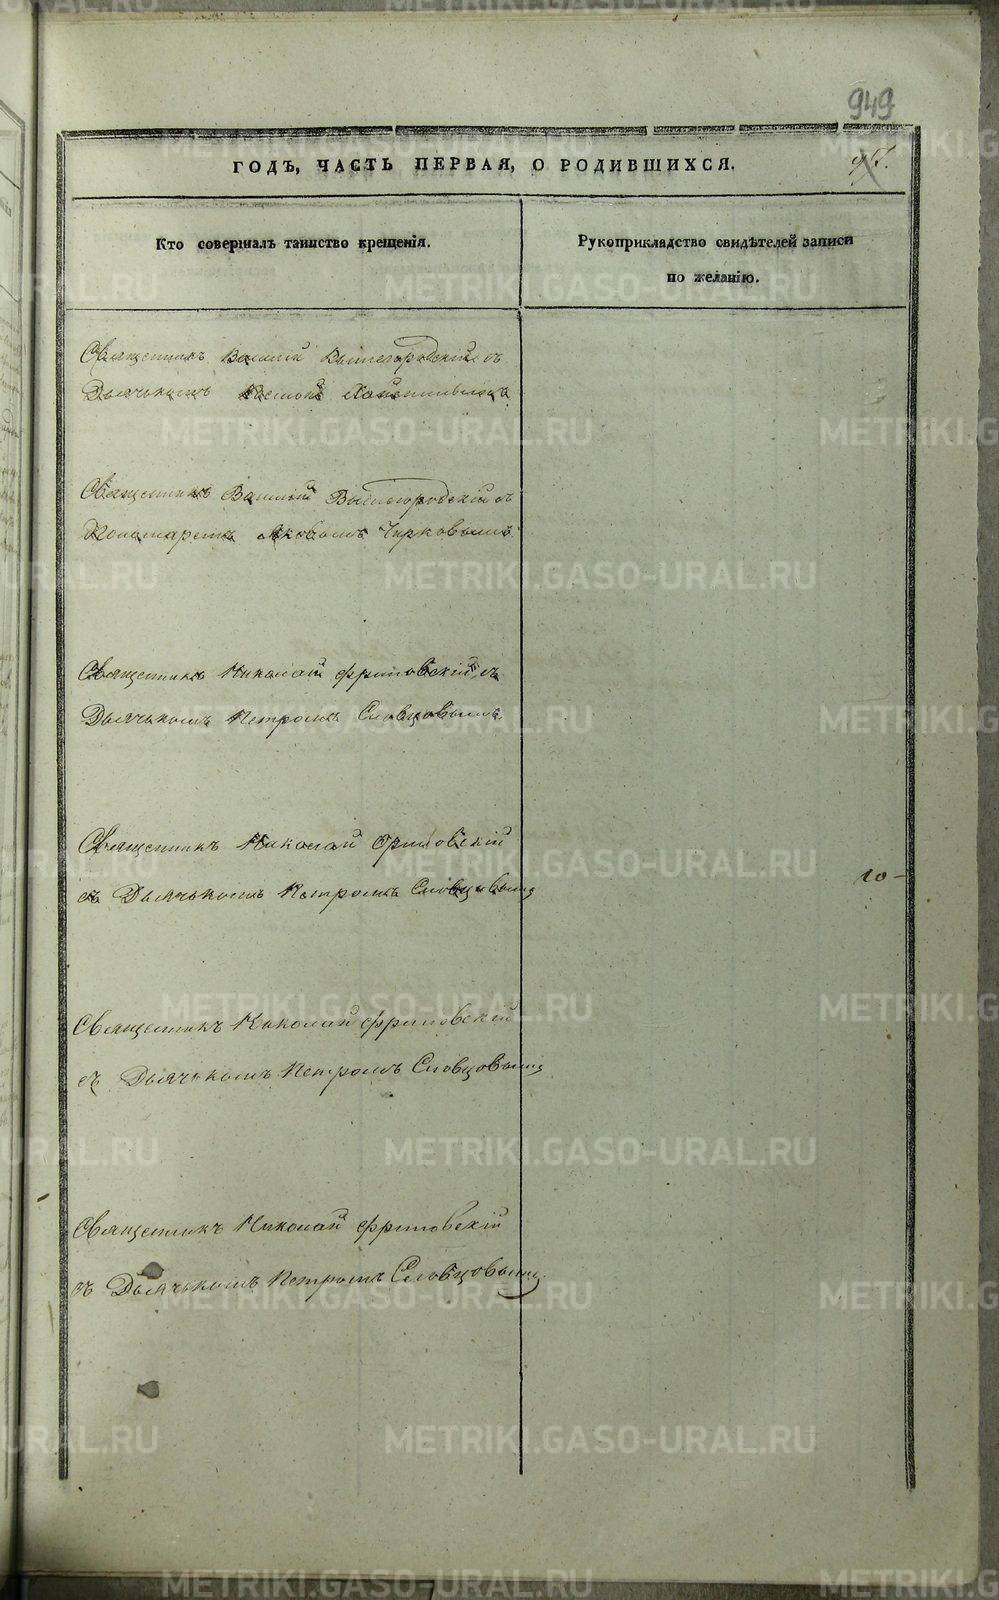 949
ГОДЪ, ЧАСТЬ ПЕРВАЯ, О РОДИВШИХСЯ.
Кто совершалъ таинство крещенія.
Рукоприкладство свидѣтелей записи
по желанію.
Священникъ Василій Вышегородскій съ
Дьячькомъ
Священникъ Василій Вышегородскій съ
Пономаремъ Яковомъ Чирковымъ
Священникъ Николай Фриновскій съ
Дьячькомъ Петромъ Словцовымъ
Священникъ Николай Фриновскій
съ Дьячькомъ Петромъ Словцовымъ
10 -
Священникъ Николай Фриновскій
съ Дьячькомъ Петромъ Словцовымъ
Священникъ Николай Фриновскій
съ Дьячькомъ Петромъ Словцовымъ.
METRIKI.GASO-URAL.RU